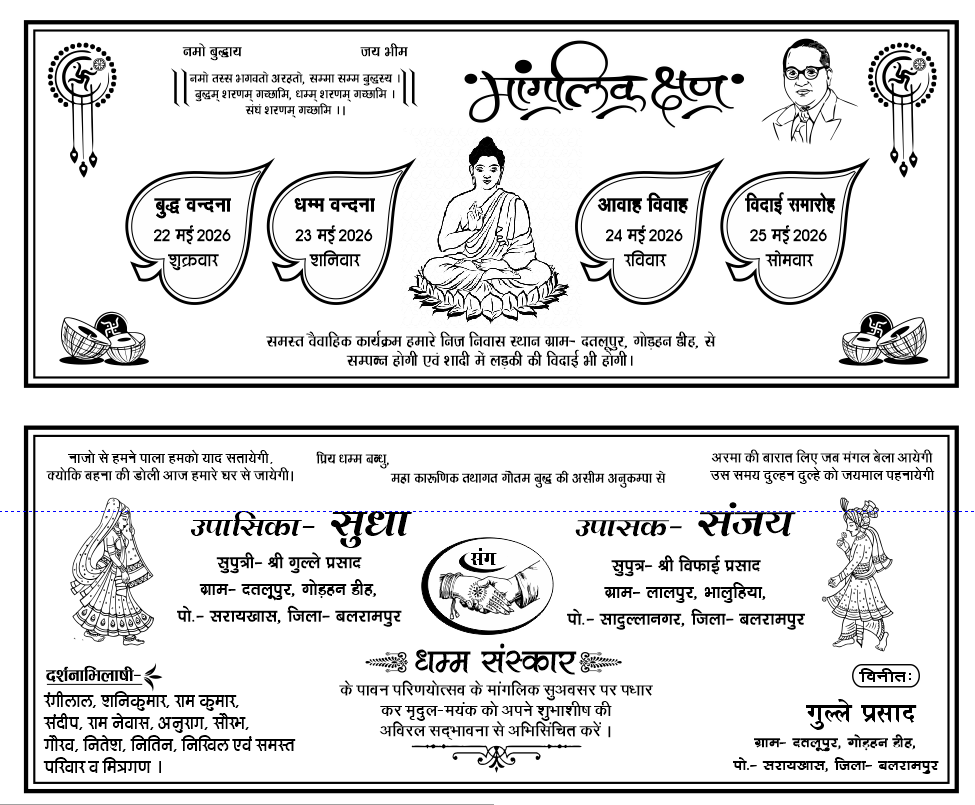 नमो बुद्धाय
जय भीम
नमो तस्स भगवतो अरहतो, सम्मा सम्म बुद्धस्य ।
बुद्धम् शरणम् गच्छामि, धम्म् शरणम् गच्छामि ।
संघं शरणम् गच्छामि ।।
मांगलिक क्षण
बुद्ध वन्दना
22 मई 2026
शुक्रवार
धम्म वन्दना
23 मई 2026
शनिवार
आवाह विवाह
24 मई 2026
रविवार
विदाई समारोह
25 मई 2026
सोमवार
समस्त वैवाहिक कार्यक्रम हमारे निज निवास स्थान ग्राम- दतलूपुर, गोड़हन डीह, से
सम्पन्न होगी एवं शादी में लड़की की विदाई भी होगी।
नाजो से हमने पाला हमको याद सतायेगी,
क्योकि बहना की डोली आज हमारे घर से जायेगी।
प्रिय धम्म बन्धु,
महा कारूणिक तथागत गौतम बुद्ध की असीम अनुकम्पा से
अरमा की बारात लिए जब मंगल बेला आयेगी
उस समय दुल्हन दुल्हे को जयमाल पहनायेगी
उपासिका- सुधा
सुपुत्री- श्री गुल्ले प्रसाद
ग्राम- दतलूपुर, गोड़हन डीह,
पो.- सरायखास, जिला- बलरामपुर
संग
उपासक- संजय
सुपुत्र- श्री विफाई प्रसाद
ग्राम- लालपुर, भालुहिया,
पो.- सादुल्लानगर, जिला- बलरामपुर
धम्म संस्कार
के पावन परिणयोत्सव के मांगलिक सुअवसर पर पधार
कर मृदुल-मयंक को अपने शुभाशीष की
अविरल सद्भावना से अभिसिंचित करें ।
दर्शनाभिलाषी-
रंगीलाल, शनिकुमार, राम कुमार,
संदीप, राम नेवास, अनुराग, सौरभ,
गौरव, नितेश, नितिन, निखिल एवं समस्त
परिवार व मित्रगण ।
विनीतः
गुल्ले प्रसाद
ग्राम- दतलूपुर, गोड़हन डीह,
पो.- सरायखास, जिला- बलरामपुर